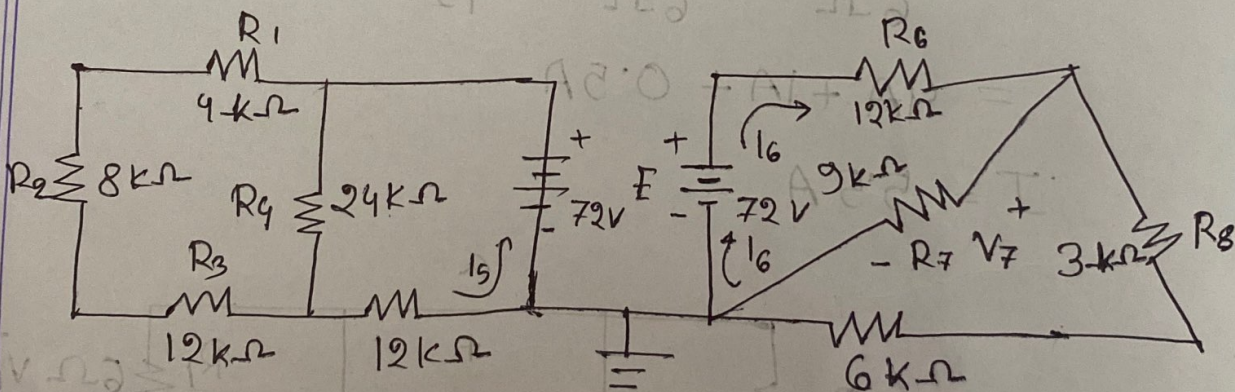 R1
4kΩ
R2 8kΩ
R4 24kΩ
R3
12kΩ
12kΩ
I5
+
72V
-
E
+
-
72V
I6
I6
R6
12kΩ
9kΩ
- R7 V7 +
3kΩ R8
6kΩ